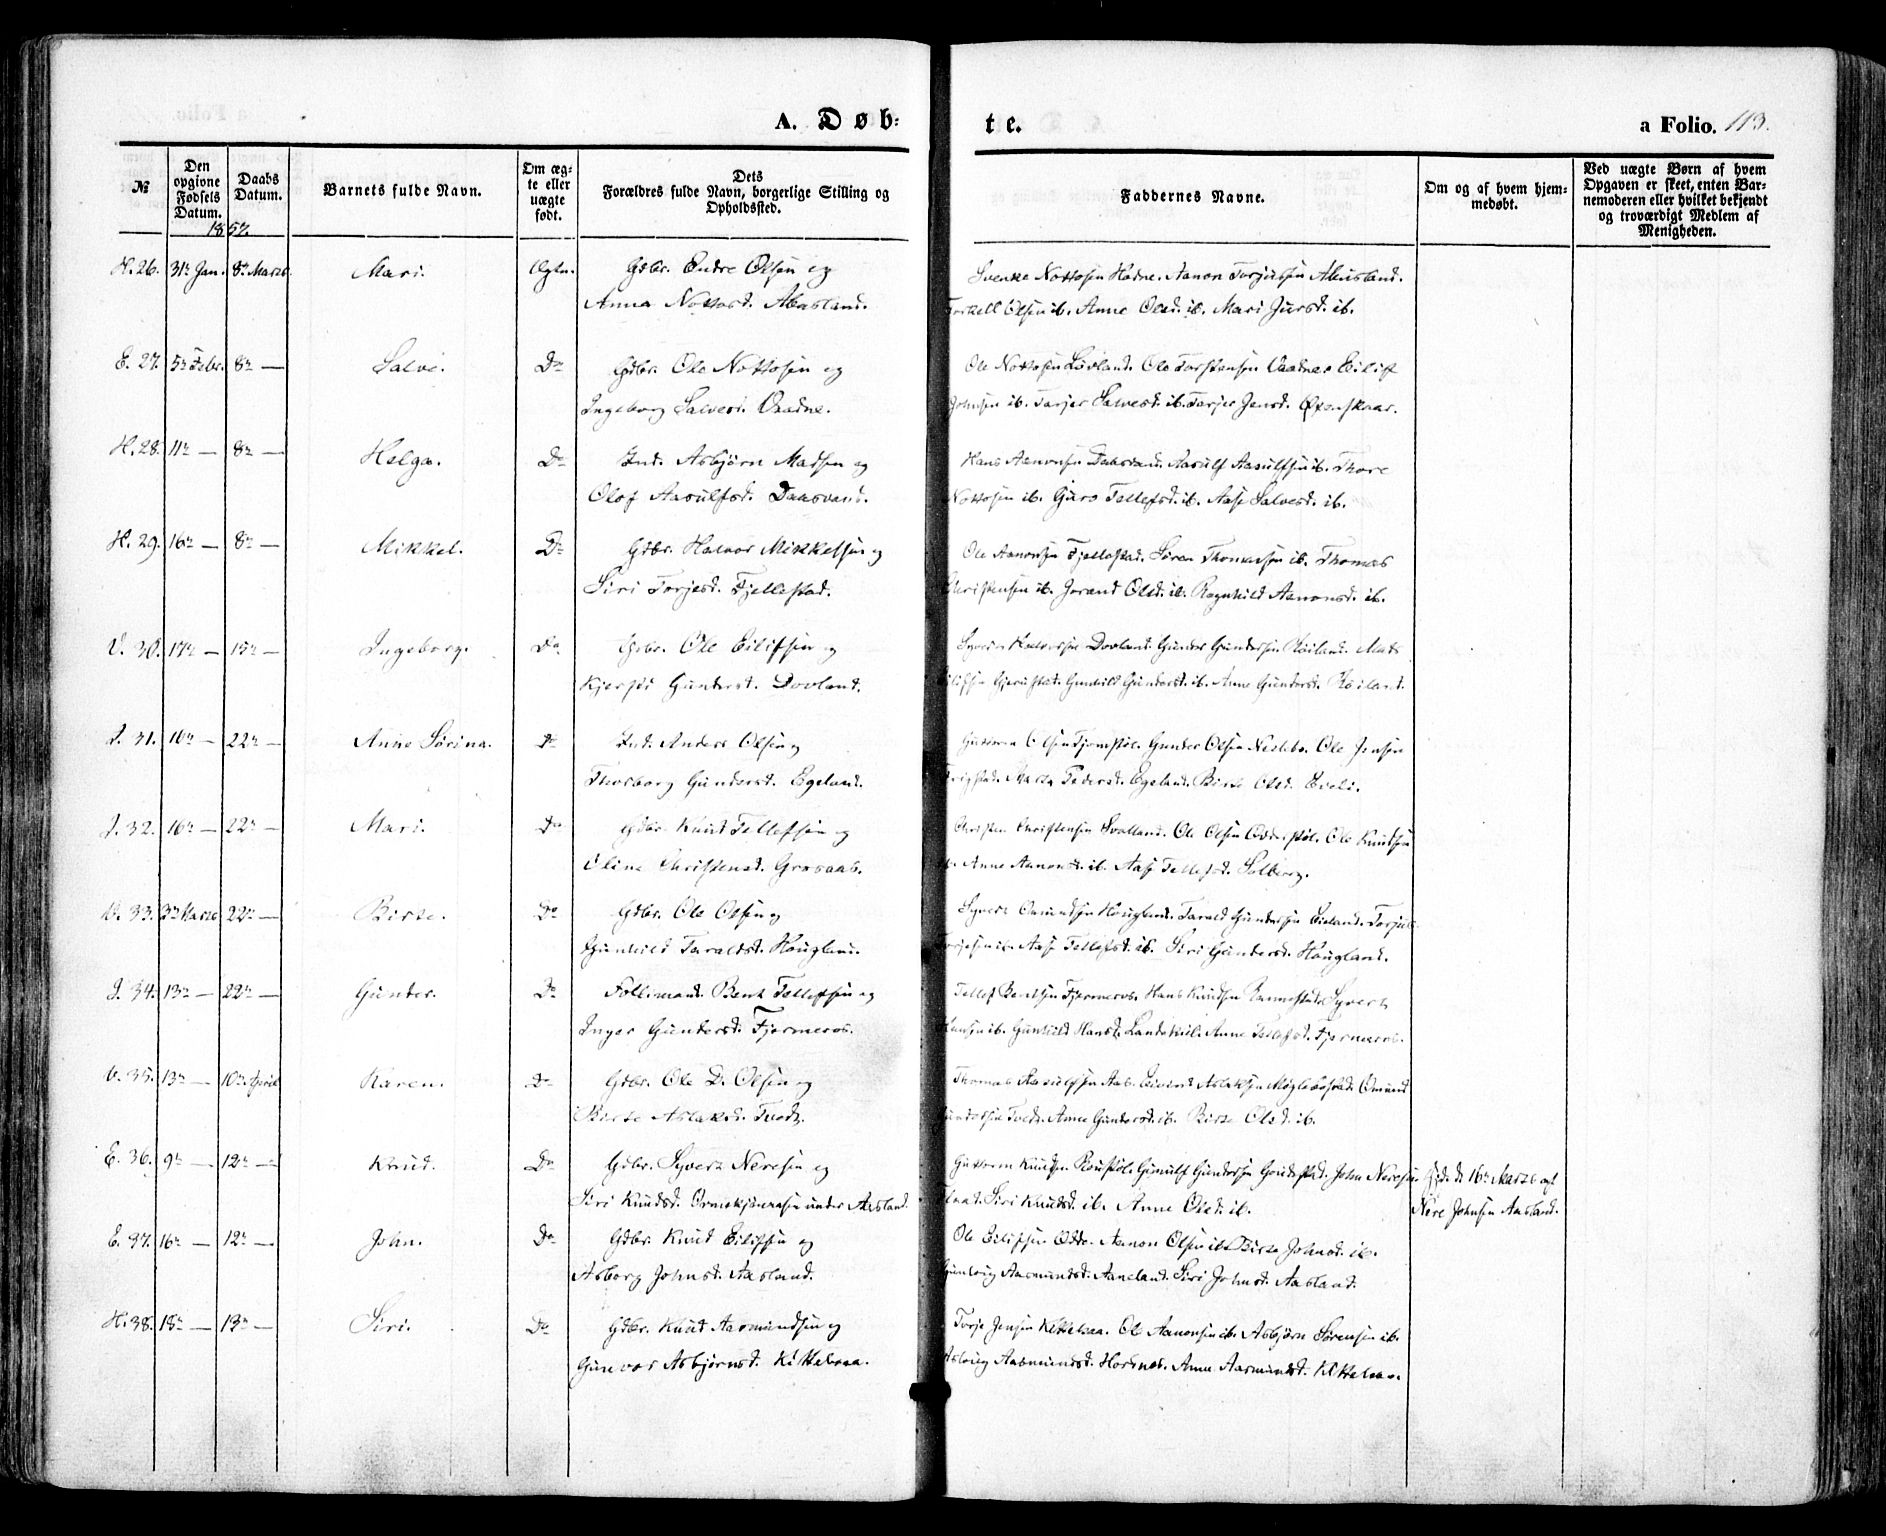 A. Døb-
te.
a Folio. 113.
№
Den opgivne Fødsels Datum.
Daabs Datum.
Barnets fulde Navn.
Om æg-te eller uægte født.
Dets Forældres fulde Navn, borgerlige Stilling og Opholdssted.
Faddernes Navne.
Om og af hvem hjem-medøbt.
Ved uægte Børn af hvem Opgaven er skeet, enten Bar-nemoderen eller hvilket bekjendt og troværdigt Medlem af Menigheden.
1857.
H. 26. 31te Jan. 8de Marts. Mari. Ægte. Gdbr. Endre Olsen og
Anna Nottosd. Abusland.
Svenke Nottosen Hodne. Aanon Torjussen Abusland.
Torkell Olsen ib. Anne Olsd. ib. Mari Jursd. ib.
E. 27. 5te Febr. 8de — Salve. Do Gdbr. Ole Nottosen og
Ingeborg Salvesd. Vaadne.
Ole Nottosen Løvland. Ole Torstensen Vaadne. Eilift
Johnsen ib. Torjer Salvesd. ib. Torjer Jensd.
H. 28. 11te — 8de — Helga. Do Ind. Asbjörn Madsen og
Olof Aasulfsd. Daasvand.
Hans Aanonsen Daasvand. Aasulf Aasulfsen ib. Thore
Nottosen ib. Guro Tellefsd. ib. Aase Salvesd. ib.
H. 29. 16de — 8de — Mikkel. Do Gdbr. Halvor Mikkelsen og
Siri Torjesd. Fjellestad.
Ole Aanonsen Fjellestad. Sören Thomassen ib. Thomas
Christensen ib. Jorand Olsd. ib. Ragnhild Aanonsd. ib.
V. 30. 17de — 15de — Ingeborg. Do Gdbr. Ole Eilifsen og
Kjersti Gundersd. Dovland.
Syvert Halvorsen Dovland. Gunder Gundersen Röiland. Mads
Eilifsen Gunhild Gundersd. ib. Anne Gundersd. Röiland.
I. 31. 16de — 22de — Anne Sörina. Do Ind. Anders Olsen og
Thorborg Gundersd. Egeland.
Guttorm Olsen Tjomstöl. Gunder Olsen Neslebo. Ole Jensen
Marte Pedersd. Egeland. Birte Olsd. Eveli.
I. 32. 16de — 22de — Mari. Do Gdbr. Knud Tellefsen og
Oline Christensd. Grosaas.
Christen Christensen Svalland. Ole Olsen Ole Knudsen
ib. Anne Aanonsd. ib. Aase Tellefsd. Solberg.
V. 33. 3de Marts 22de — Birte. Do Gdbr. Ole Olsen og
Gunhild Taraldsd. Hougland.
Syvert Omundsen Hougland. Tarald Gundersen Eieland. Torjus
Torjesen ib. Aase Tellefsd. ib. Siri Gundersd. Hougland.
I. 34. 13de — 22de — Gunder. Do Föllimand. Bent Tellefsen og
Inger Gundersd. Fjermeros.
Tellef Bentsen Fjermeros. Hans Knudsen Syvert
Hansen ib. Gunhild Hansd. Landskiil. Anne Tellefsd. Fjermeros.
V. 35. 13de — 10de April Karen. Do Gdbr. Ole D. Olsen og
Birte Aslaksd. Tvedt.
Thomas Aasulfsen Aas. Eivind Aslaksen Möglebostad. Omund
Gundersen Tvedt. Anne Gundersd. ib. Birte Olsd. ib.
E. 36. 9de — 12te — Knud. Do Gdbr. Syvert Neresen og
Siri Knudsd. under Aasland.
Guttorm Knudsen Roustöl. Gunulf Gundersen John Neresen
Flaat. Siri Knudsd. ib. Anne Olsd. ib.
Hjd. d. 16de Marts af
Nere Johnsen Aasland.
E. 37. 16de — 12te — John. Do Gdbr. Knud Eilifsen og
Asborg Johnsd. Aasland.
Ole Eilifsen Odde. Aanon Olsen ib. Birte Johnsd. ib.
Gunborg Aasmundsd. Aaneland. Siri Johnsd. Aasland.
H. 38. 18de — 13de — Siri. Do Gdbr. Knud Aasmundsen og
Gunvor Asbjörnsd. Kittelsaa.
Torje Jensen Kittelsaa. Ole Aanonsen ib. Asbjörn Sörensen ib.
Asborg Aasmundsd. Hornes. Anne Aasmundsd. Kittelsaa.